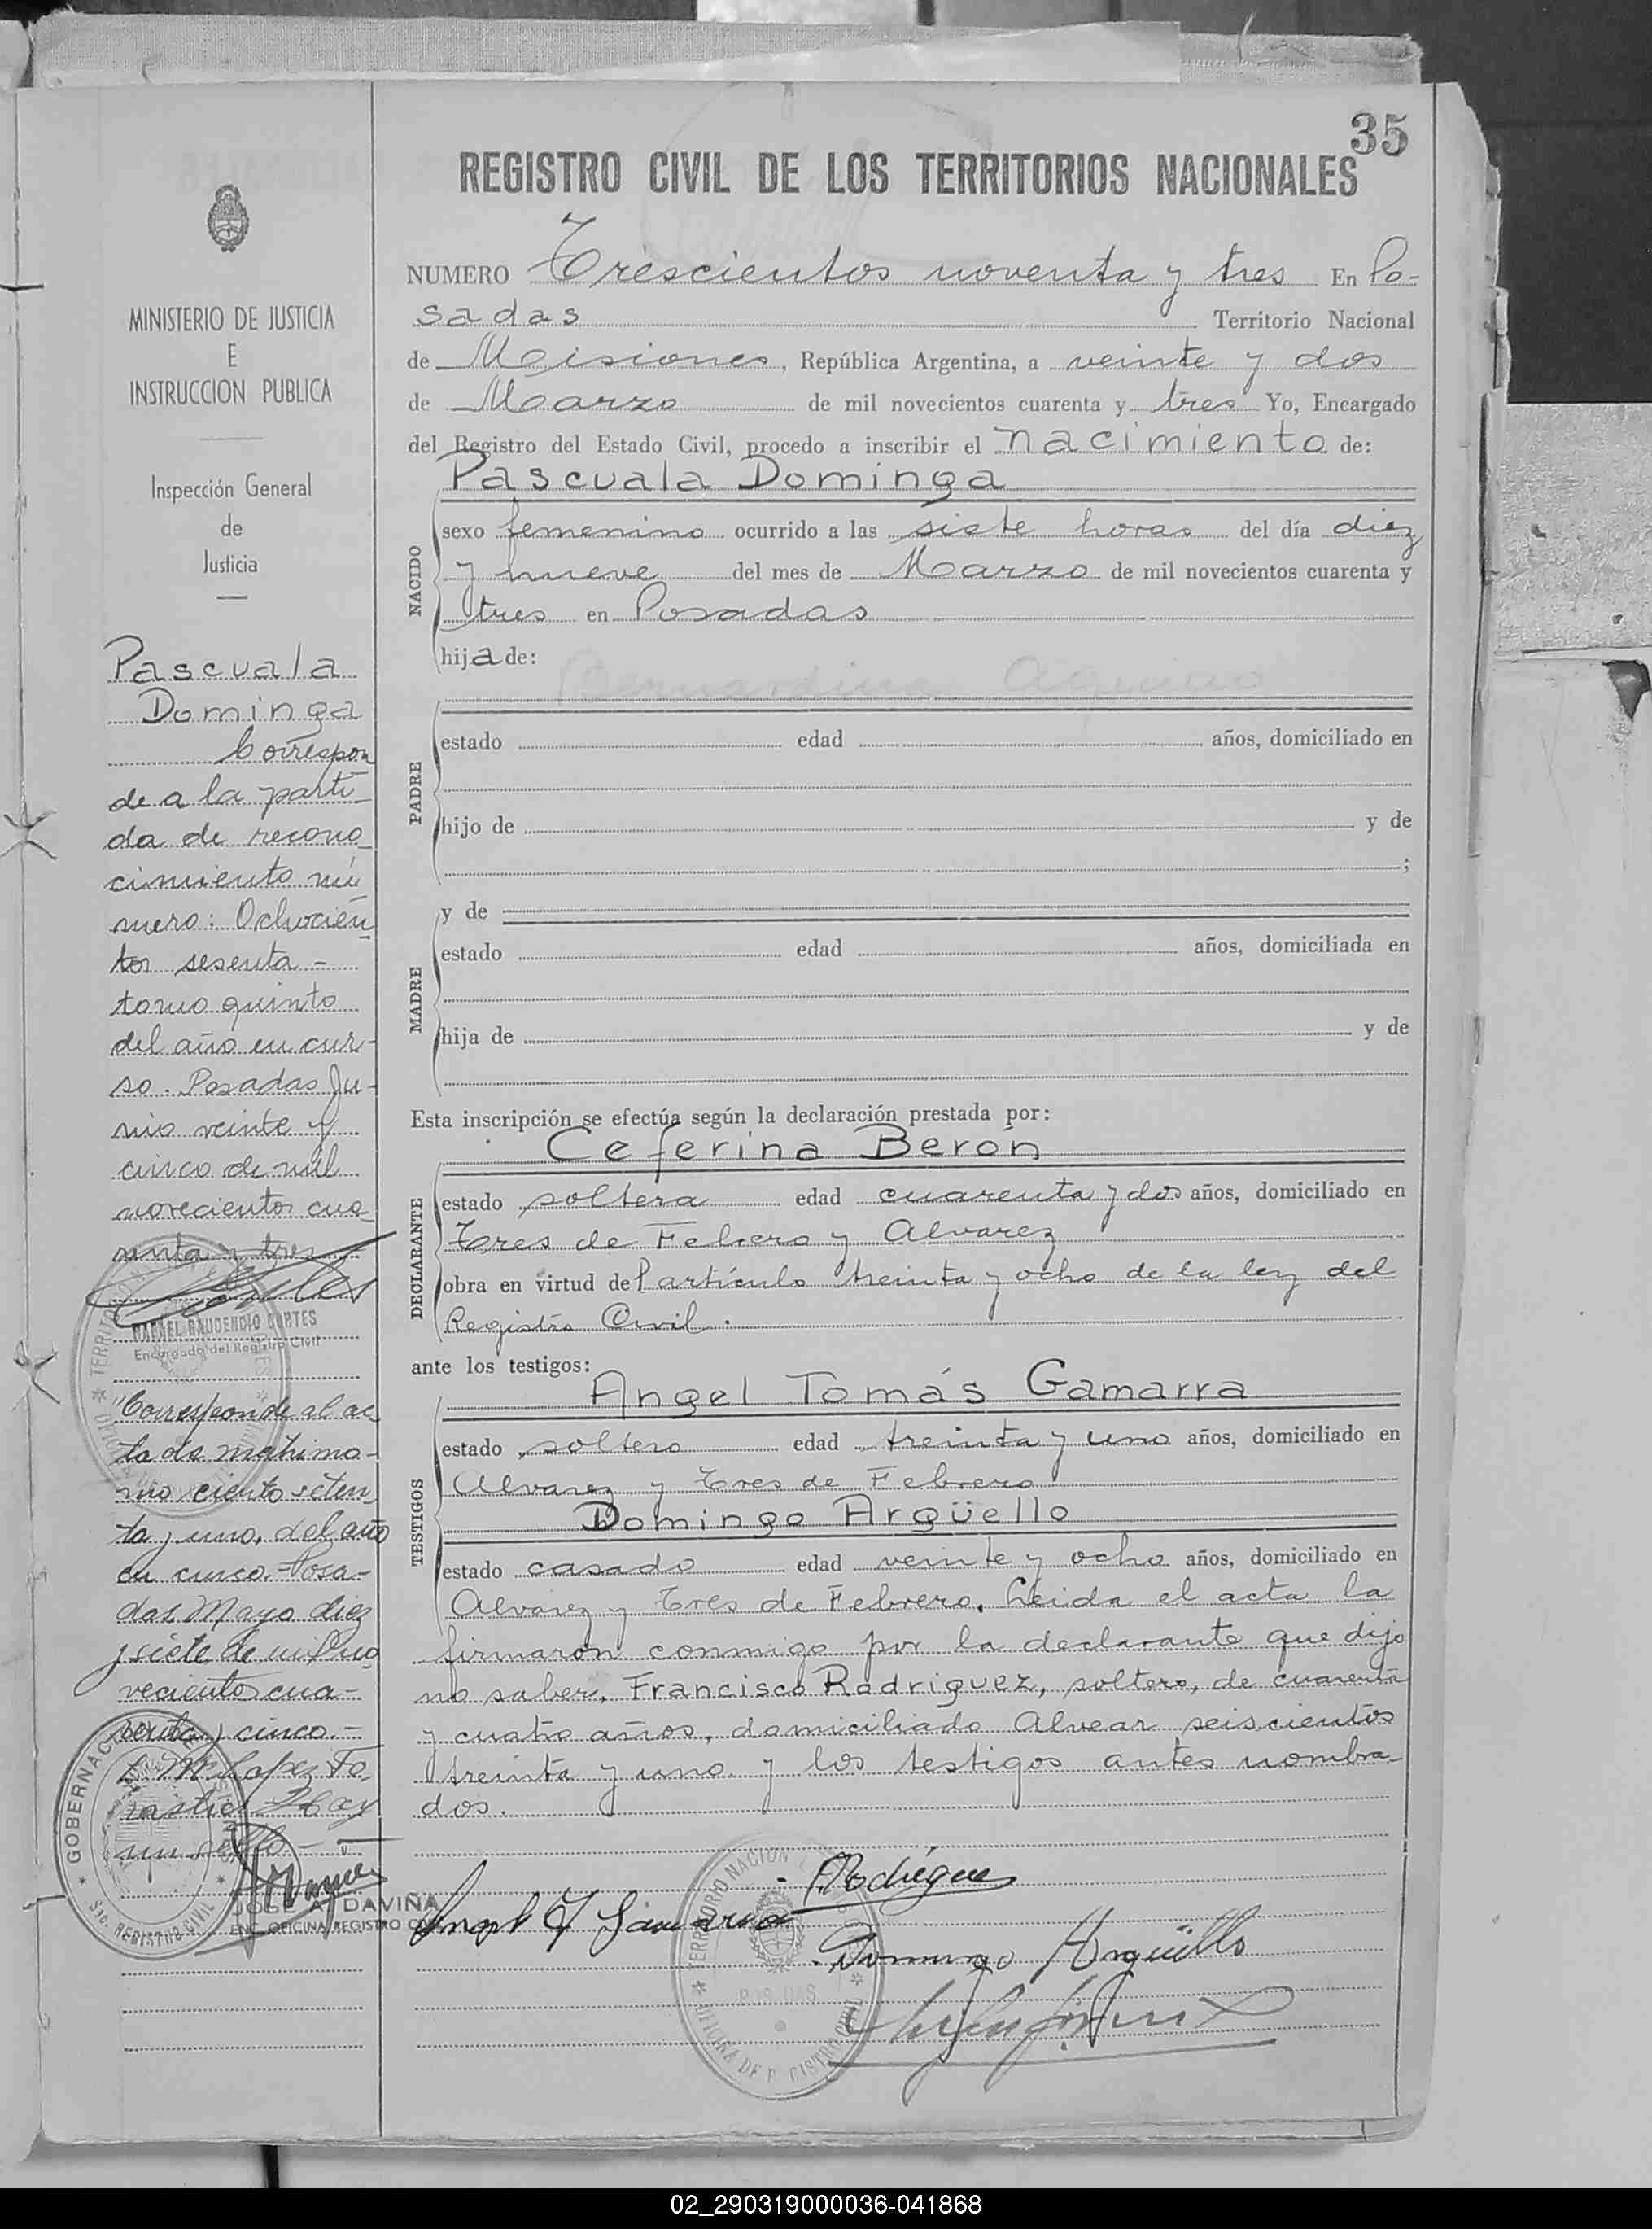 35
REGISTRO CIVIL DE LOS TERRITORIOS NACIONALES
MINISTERIO DE JUSTICIA
E
INSTRUCCION PUBLICA
Inspección General
de
Justicia
Pascuala
Dominga
Correspon
de a la parti-
da de recono-
cimiento nú
mero: Ochocien
tos sesenta -
tomo quinto
del año en cur-
so. Posadas Ju-
nio veinte y
cinco de mil
novecientos cua-
renta y tres
RAFAEL GAUDENDIO CORTES
Encargado del Registro Civil
Corresponde al ac
ta de matrimo-
nio ciento seten
ta y uno, del año
en curso. - Posa-
das Mayo diez
y siete de mil no
vecientos cua-
renta y cinco. -
Lopez Fo
rastié Hay
un sello. -
GOBERNAC
REGISTRO CIVIL
JOSE A. DAVIÑA
ENC. OFICINA REGISTRO
NUMERO Trescientos noventa y tres En Po-
sadas Territorio Nacional
de Misiones, República Argentina, a veinte y dos
de Marzo de mil novecientos cuarenta y tres Yo, Encargado
del Registro del Estado Civil, procedo a inscribir el nacimiento de:
Pascuala Dominga
NACIDO
sexo femenino ocurrido a las siete horas del día diez
y nueve del mes de Marzo de mil novecientos cuarenta y
tres en Posadas
hija de:
PADRE
estado edad años, domiciliado en
hijo de y de
;
y de
MADRE
estado edad años, domiciliada en
hija de y de
Esta inscripción se efectúa según la declaración prestada por:
Ceferina Berón
DECLARANTE
estado soltera edad cuarenta y dos años, domiciliado en
Tres de Febrero y Alvarez
obra en virtud del artículo treinta y ocho de la ley del
Registro Civil.
ante los testigos:
Angel Tomás Gamarra
TESTIGOS
estado soltero edad treinta y uno años, domiciliado en
Alvarez y Tres de Febrero
Domingo Argüello
estado casado edad veinte y ocho años, domiciliado en
Alvarez y Tres de Febrero. Leida el acta la
firmaron conmigo por la declarante que dijo
no saber, Francisco Rodriguez, soltero, de cuarenta
y cuatro años, domiciliado Alvear seiscientos
treinta y uno y los testigos antes nombra-
dos.
Rodriguez
Angel T Gamarra
Domingo Argüello
02_290319000036-041868